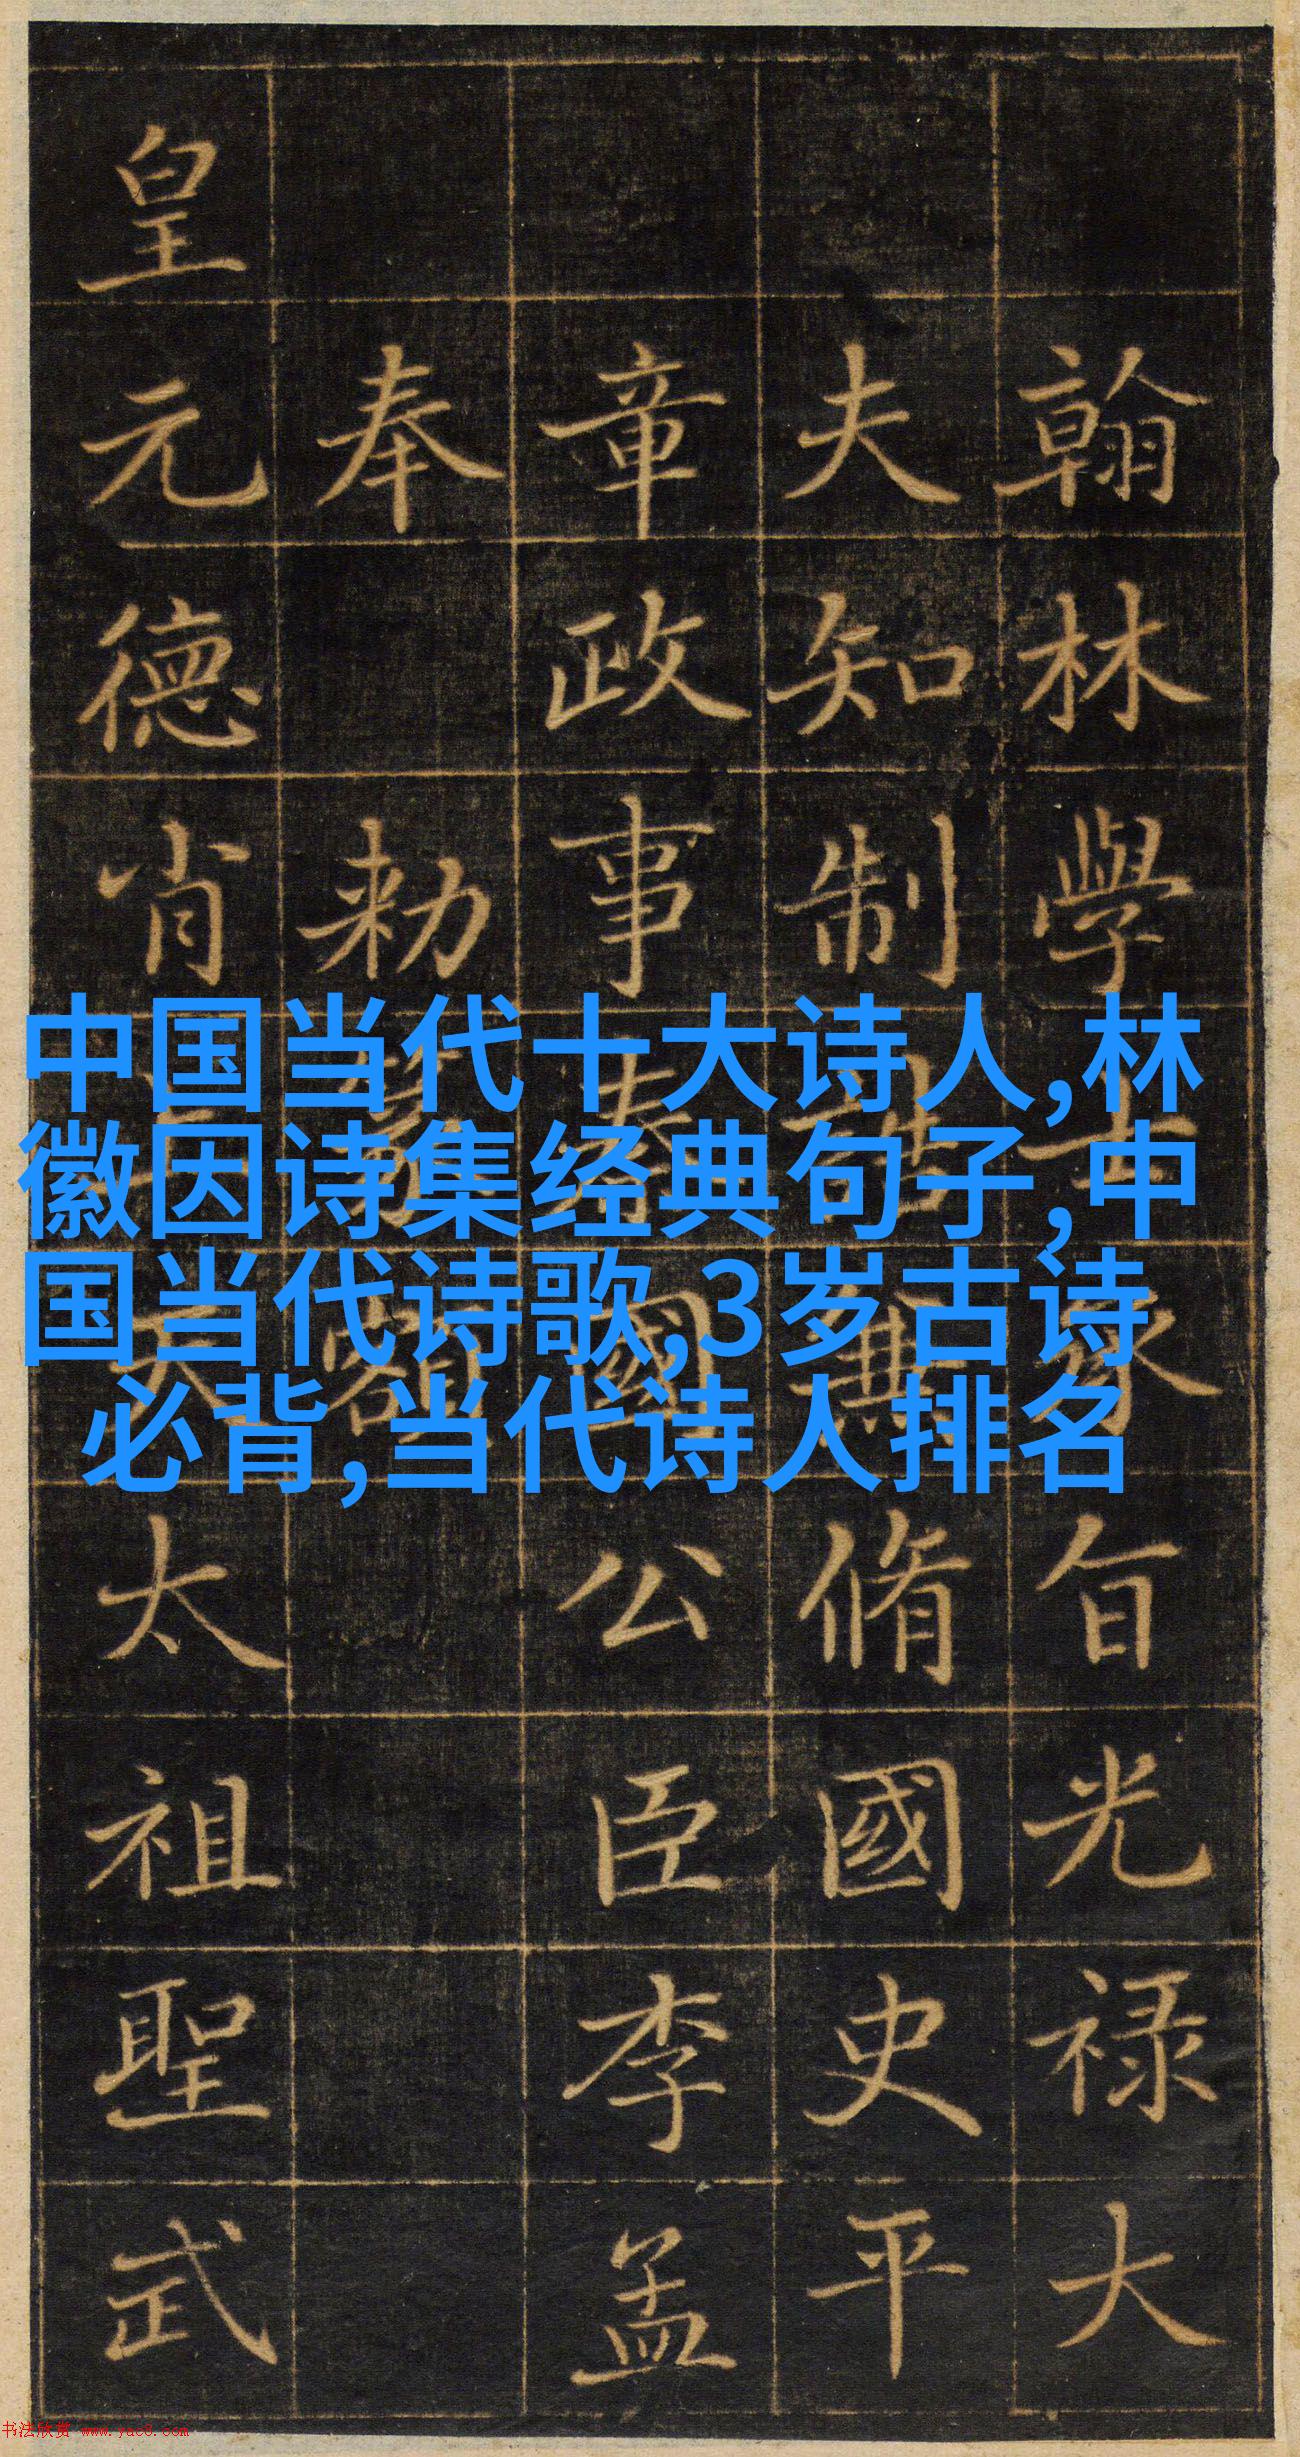 翰林學士承旨光祿大
夫知制誥兼脩國史平
章政事秦國公臣李孟
奉 勑篆額
皇元德肖上天太祖聖武
中国当代十大诗人,林
徽因诗集经典句子,中
国当代诗歌,3岁古诗
必背,当代诗人排名
书法欣赏 www.yac8.com